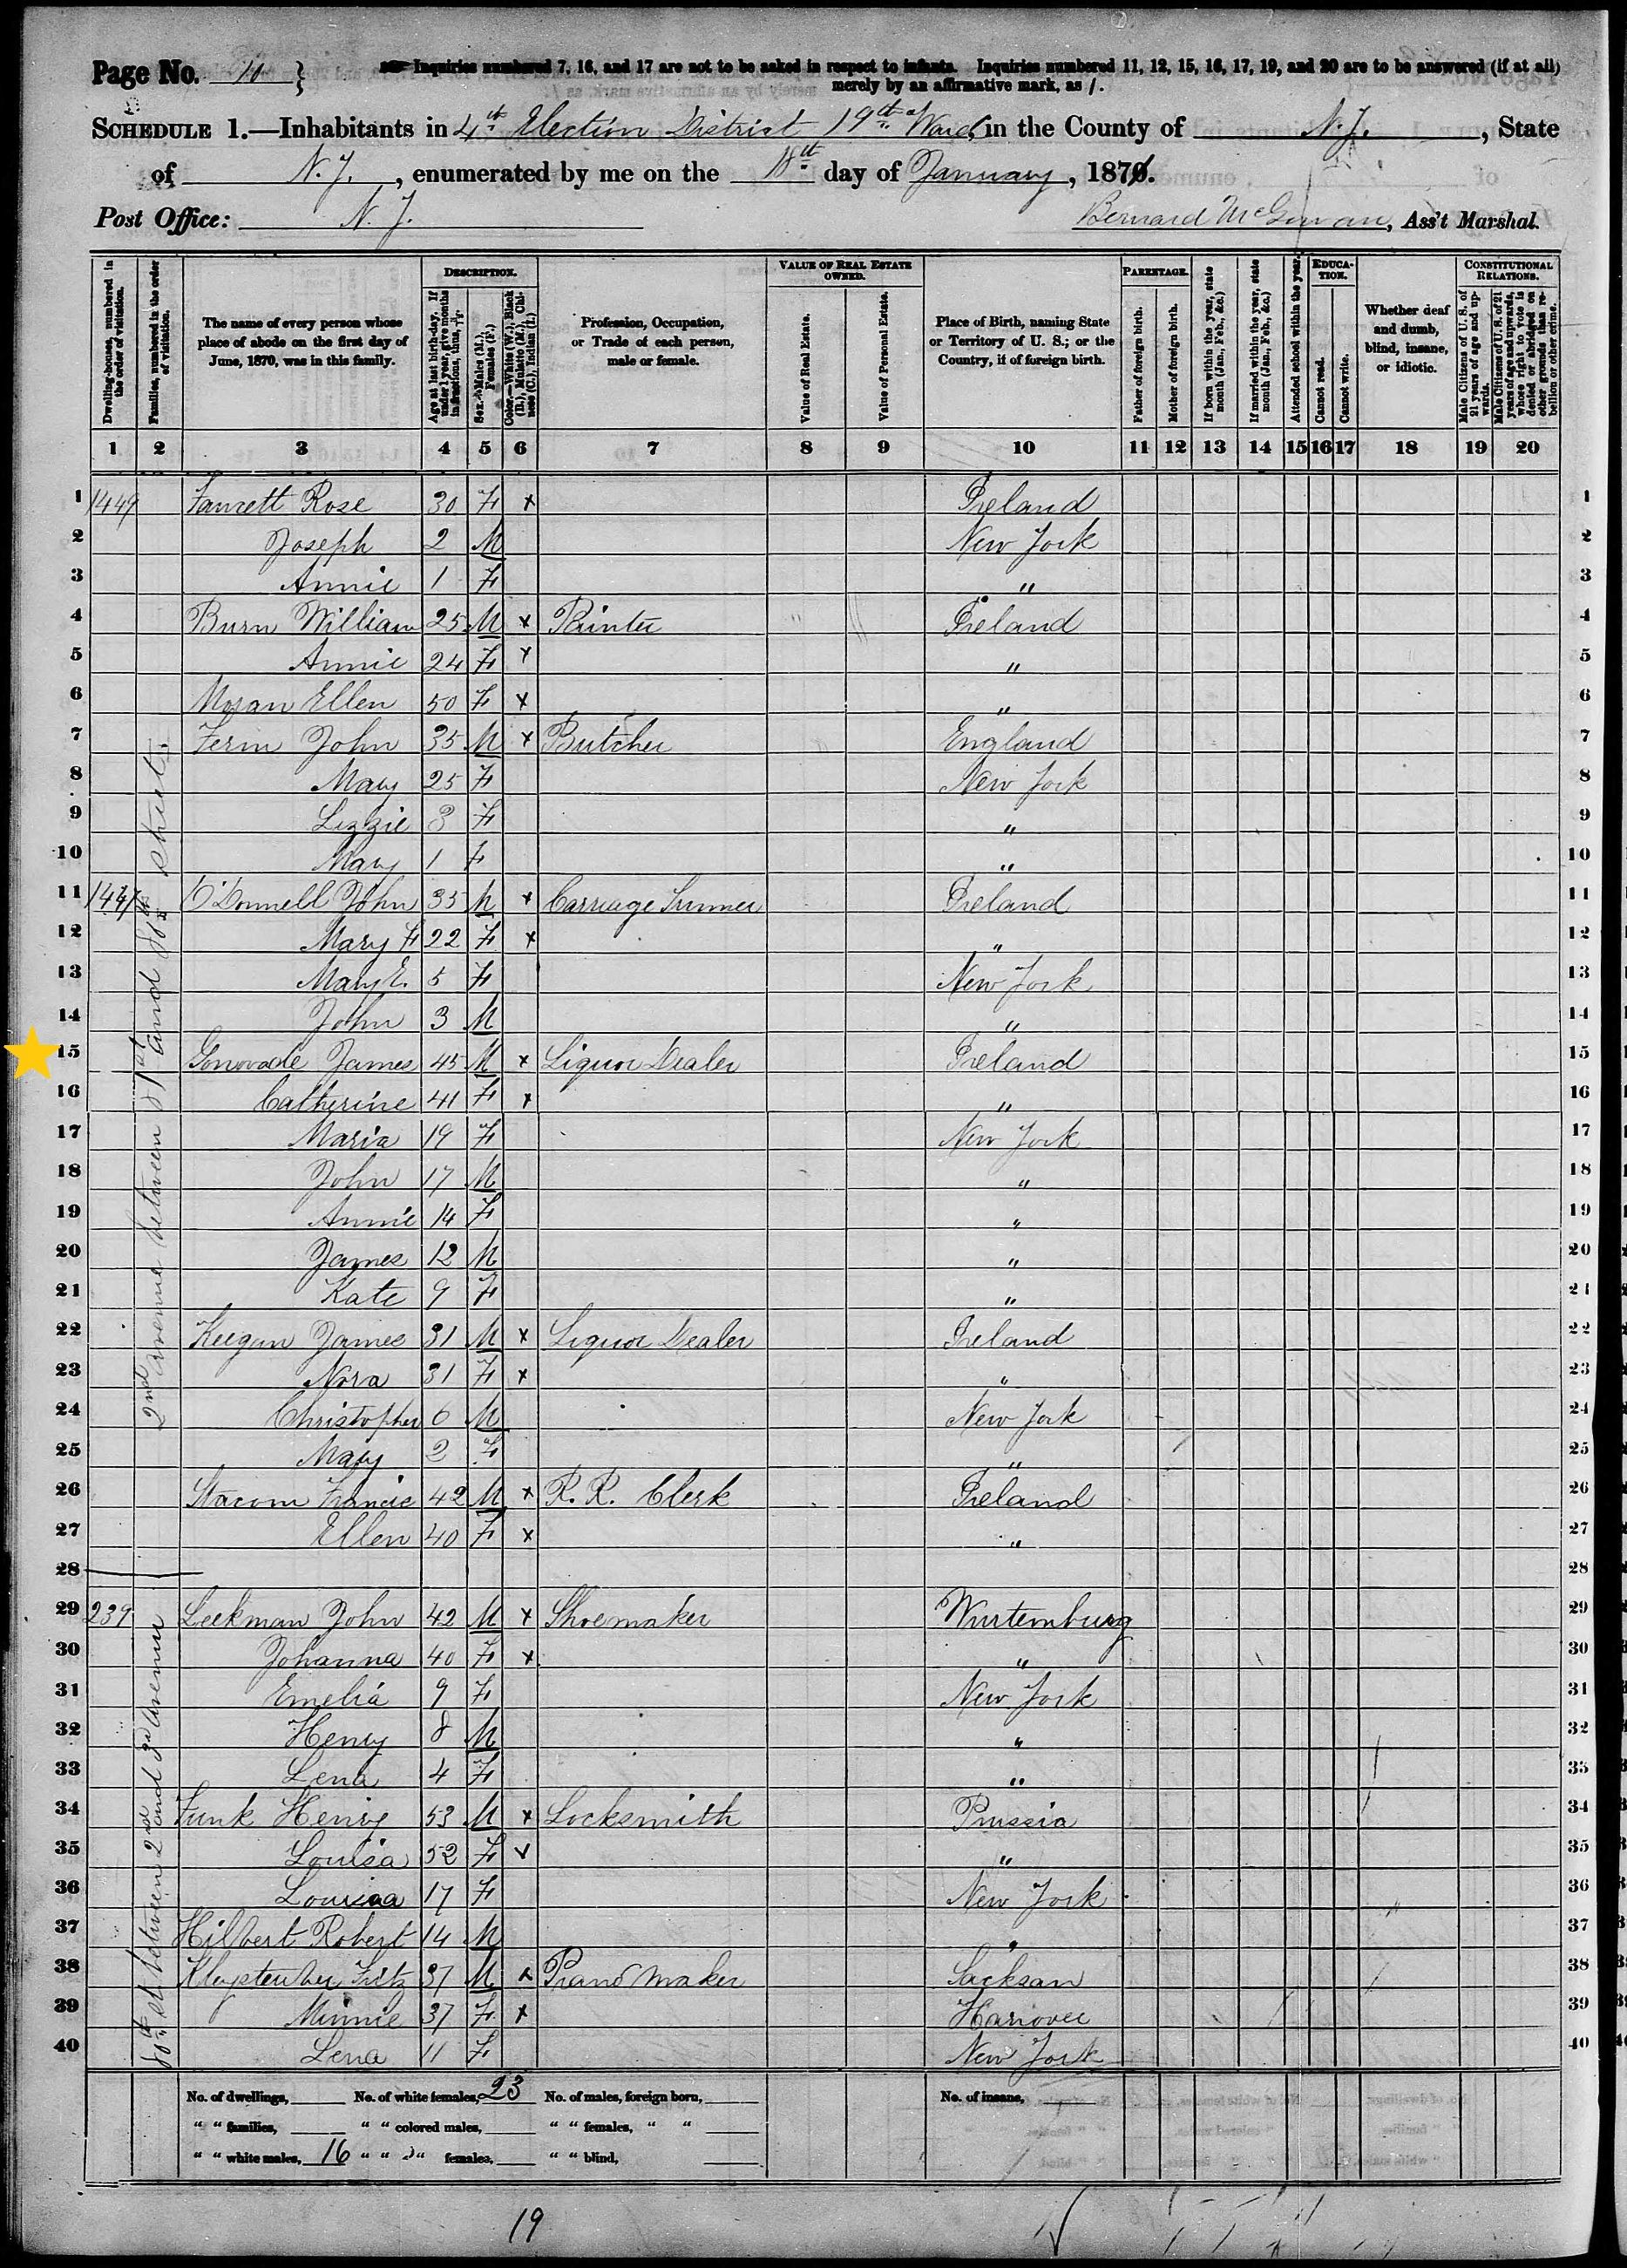 Page No. 10 }
Inquiries numbered 7, 16, and 17 are not to be asked in respect to infants. Inquiries numbered 11, 12, 15, 16, 17, 19, and 20 are to be answered (if at all)
merely by an affirmative mark, as /.
SCHEDULE 1.—Inhabitants in 4th Election District 19th Ward, in the County of N.Y., State
of N.Y., enumerated by me on the 18th day of January, 1870.
Post Office: N.Y. Bernard McGowan, Ass't Marshal.
Dwelling-houses, numbered in the order of visitation.
Families, numbered in the order of visitation.
The name of every person whose place of abode on the first day of June, 1870, was in this family.
DESCRIPTION.
Age at last birth-day. If under 1 year, give months in fractions, thus,
Sex.—Males (M.), Females (F.)
Color.—White (W.), Black (B.), Mulatto (M.), Chinese (C.), Indian (I.)
Profession, Occupation, or Trade of each person, male or female.
VALUE OF REAL ESTATE OWNED.
Value of Real Estate.
Value of Personal Estate.
Place of Birth, naming State or Territory of U. S.; or the Country, if of foreign birth.
PARENTAGE.
Father of foreign birth.
Mother of foreign birth.
If born within the year, state month (Jan., Feb., &c.)
If married within the year, state month (Jan., Feb., &c.)
Attended school within the year.
EDUCATION.
Cannot read.
Cannot write.
Whether deaf and dumb, blind, insane, or idiotic.
CONSTITUTIONAL RELATIONS.
Male Citizens of U. S. of 21 years of age and upwards.
Male Citizens of U. S. of 21 years of age and upwards, whose right to vote is denied or abridged on other grounds than rebellion or other crime.
1 2 3 4 5 6 7 8 9 10 11 12 13 14 15 16 17 18 19 20
1 1449 Rose 30 F x Ireland 1
2 Joseph 2 M New York 2
3 Annie 1 F " 3
4 Burn William 25 M x Painter Ireland 4
5 Annie 24 F x " 5
6 Ellen 50 F x " 6
7 John 35 M x Butcher England 7
8 Mary 25 F New York 8
9 Lizzie 3 F " 9
10 Mary 1 F " 10
11 1447 O'Donnell John 35 M x Carriage Trimer Ireland 11
12 Mary F 22 F x " 12
13 Mary E. 5 F New York 13
14 John 3 M " 14
15 James 45 M x Liquor Dealer Ireland 15
16 Catherine 41 F x " 16
17 Maria 19 F New York 17
18 John 17 M " 18
19 Annie 14 F " 19
20 James 12 M " 20
21 Kate 9 F " 21
22 Keegan James 31 M x Liquor Dealer Ireland 22
23 Nora 31 F x " 23
24 Christopher 6 M New York 24
25 Mary 2 F " 25
26 Stacom Francis 42 M x R. R. Clerk Ireland 26
27 Ellen 40 F x " 27
28 28
29 239 Leekman John 42 M x Shoemaker Wurtemburg 29
30 Johanna 40 F x " 30
31 Emelia 9 F New York 31
32 Henry 8 M " 32
33 Lena 4 F " 33
34 Funk Henry 53 M x Locksmith Prussia 34
35 Louisa 52 F x " 35
36 Louisa 17 F New York 36
37 Hilbert Robert 14 M " 37
38 Fritz 37 M x Piano Maker Sacksan 38
39 Minnie 37 F x Hanover 39
40 Lena 11 F New York 40
2nd Avenue between 81st and 80th Street.
80th St between 2nd and 3rd Avenue
No. of dwellings, No. of white females, 23 No. of males, foreign born, No. of insane,
" " families, " " colored males, " " females, " "
" " white males, 16 " " " females, " " blind,
19